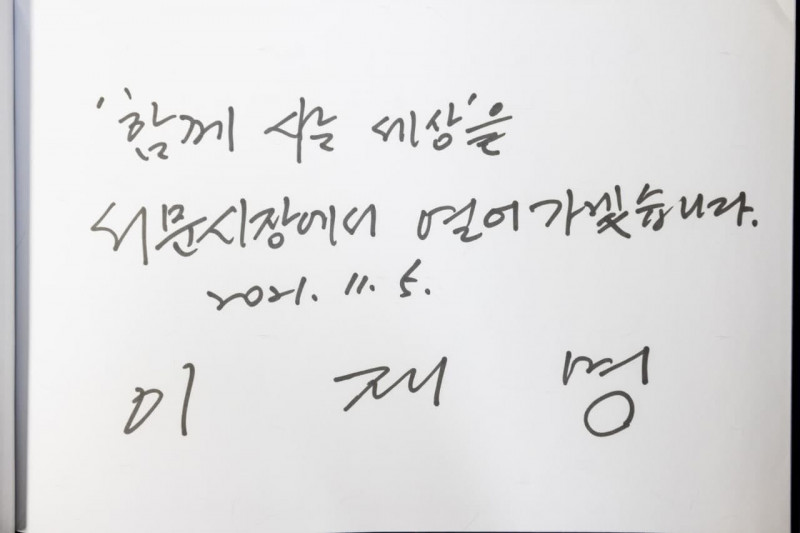 '함께 사는 세상'을
서문시장에서 열어가겠습니다.
2021. 11. 5.
이 재 명